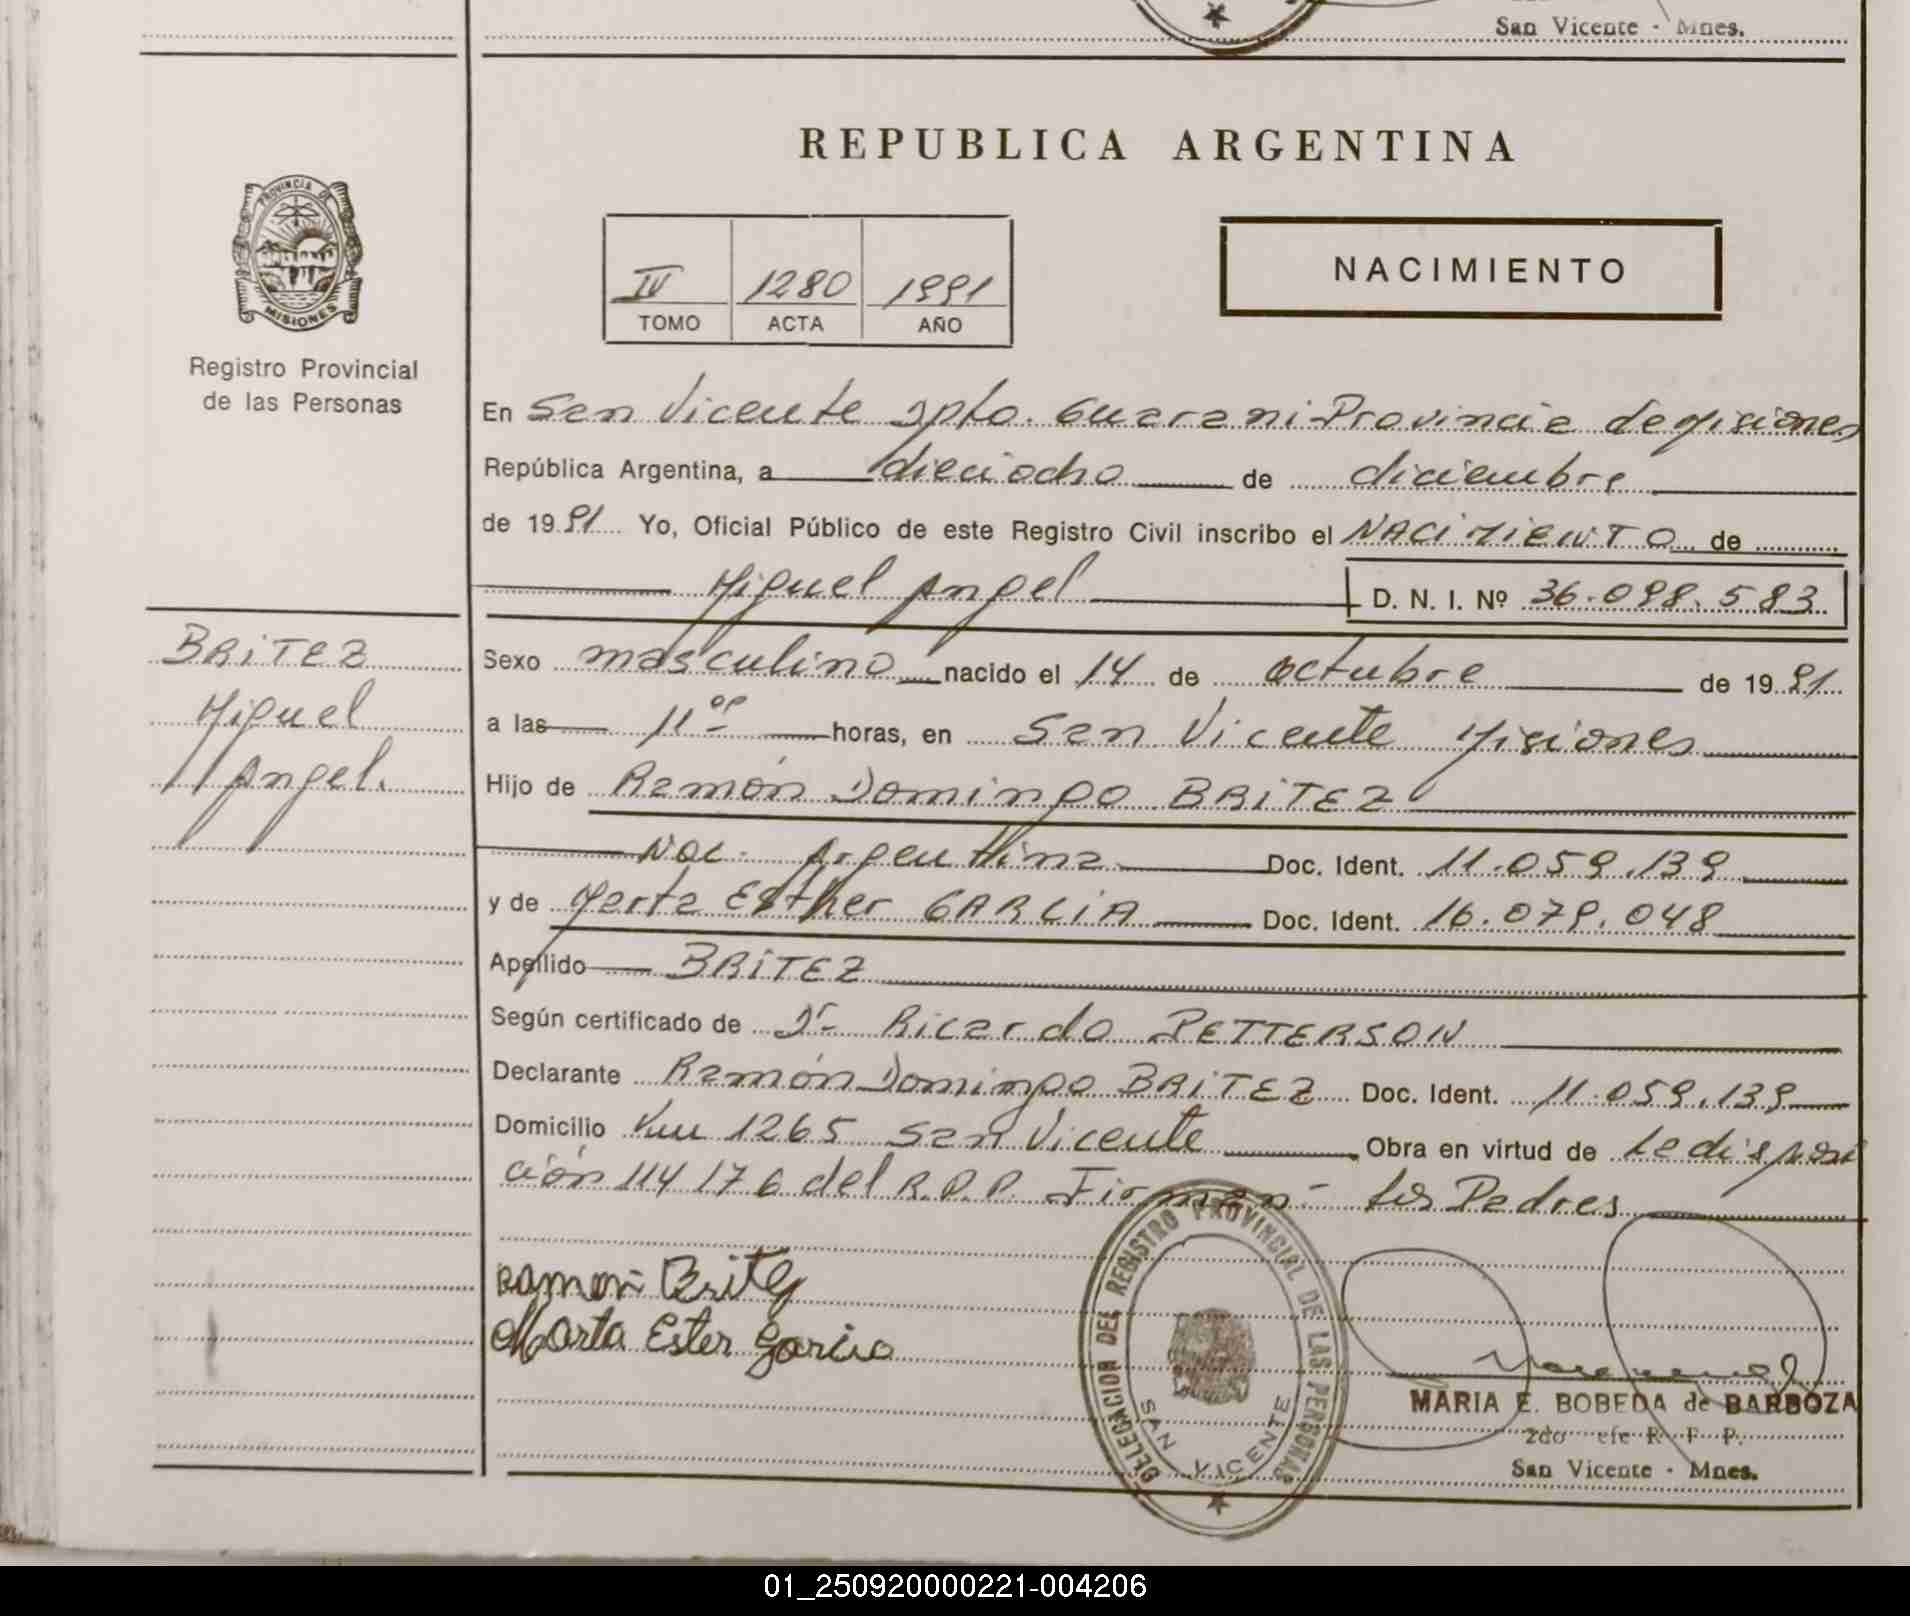 San Vicente - Mnes.
REPUBLICA ARGENTINA
PROVINCIA DE
MISIONES
Registro Provincial
de las Personas
IV 1280 1991
TOMO ACTA AÑO
NACIMIENTO
En San Vicente Dpto. Guarani Provincia de Misiones
República Argentina, a dieciocho de diciembre
de 1991 Yo, Oficial Público de este Registro Civil inscribo el NACIMIENTO de
Miguel Angel D. N. I. Nº 36.098.583
BRITEZ
Miguel
Angel.
Sexo masculino nacido el 14 de octubre de 1991
a las 11 horas, en San Vicente Misiones
Hijo de Ramón Domingo BRITEZ
Nac. Argentina Doc. Ident. 11.059.139
y de Marta Esther GARCIA Doc. Ident. 16.079.048
Apellido BRITEZ
Según certificado de Dr. Ricardo PETTERSON
Declarante Ramón Domingo BRITEZ Doc. Ident. 11.059.139
Domicilio Km 1265 San Vicente Obra en virtud de La disposi
ción 114/76 del R.P.P. Firman- los Padres
Ramon Britez
Marta Ester Garcia
DELEGACION DEL REGISTRO PROVINCIAL DE LAS PERSONAS
SAN VICENTE
MARIA E. BOBEDA de BARBOZA
2do efe R P P.
San Vicente - Mnes.
01_250920000221-004206